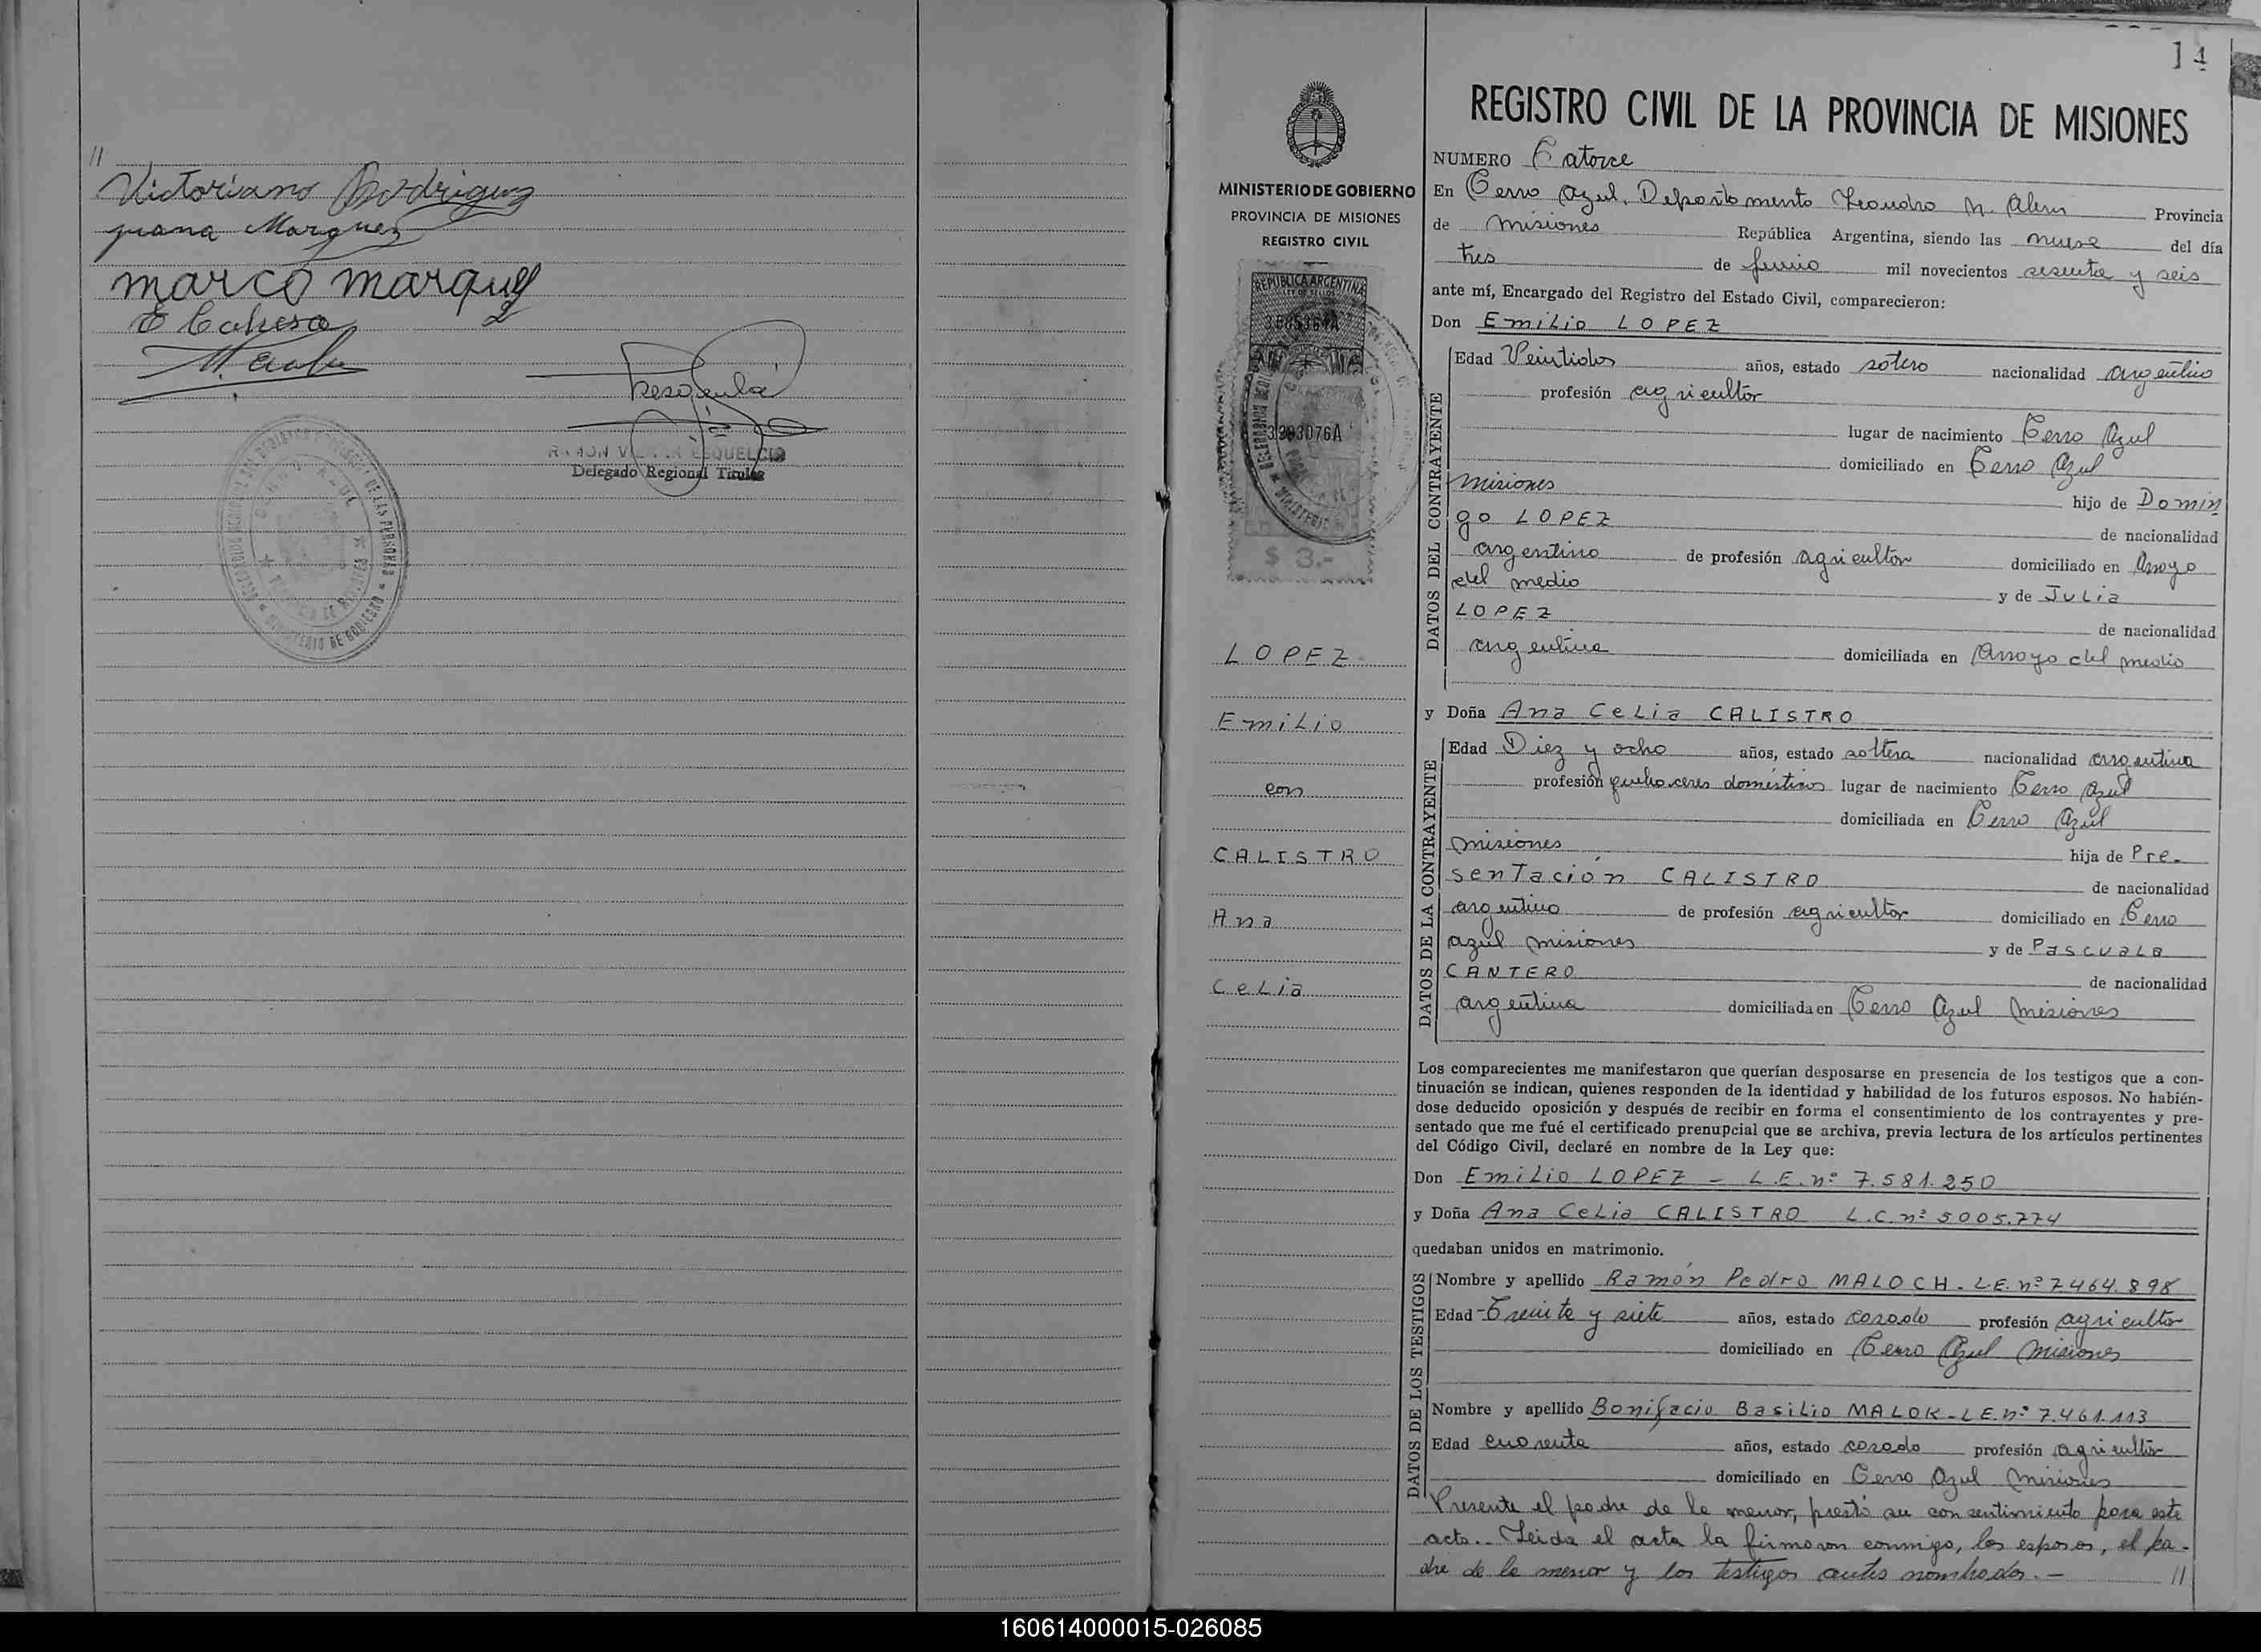 //
Victoriano Rodriguez
Juana Marquez
marco marquez
E Cabesa
Delegado Regional Titular
14
REGISTRO CIVIL DE LA PROVINCIA DE MISIONES
MINISTERIO DE GOBIERNO
PROVINCIA DE MISIONES
REGISTRO CIVIL
REPUBLICA ARGENTINA
3293076A
$ 3.-
LOPEZ
Emilio
con
CALISTRO
Ana
Celia
NUMERO Catorce
En Cerro Azul, Departamento Leandro N. Alem Provincia
de Misiones República Argentina, siendo las nueve del día
tres de junio mil novecientos sesenta y seis
ante mí, Encargado del Registro del Estado Civil, comparecieron:
Don Emilio LOPEZ
DATOS DEL CONTRAYENTE
Edad Veintidos años, estado sotero nacionalidad argentino
profesión agricultor
lugar de nacimiento Cerro Azul
domiciliado en Cerro Azul
Misiones hijo de Domin
go LOPEZ de nacionalidad
argentino de profesión agricultor domiciliado en Arroyo
del medio y de Julia
LOPEZ de nacionalidad
argentina domiciliada en Arroyo del medio
y Doña Ana Celia CALISTRO
DATOS DE LA CONTRAYENTE
Edad Diez y ocho años, estado soltera nacionalidad argentina
profesión quehaceres domésticos lugar de nacimiento Cerro Azul
domiciliada en Cerro Azul
Misiones hija de Pre-
sentación CALISTRO de nacionalidad
argentino de profesión agricultor domiciliado en Cerro
azul Misiones y de Pascuala
CANTERO de nacionalidad
argentina domiciliada en Cerro Azul Misiones
Los comparecientes me manifestaron que querían desposarse en presencia de los testigos que a con-
tinuación se indican, quienes responden de la identidad y habilidad de los futuros esposos. No habién-
dose deducido oposición y después de recibir en forma el consentimiento de los contrayentes y pre-
sentado que me fué el certificado prenupcial que se archiva, previa lectura de los artículos pertinentes
del Código Civil, declaré en nombre de la Ley que:
Don Emilio LOPEZ - L.E. nº 7.581.250
y Doña Ana Celia CALISTRO L.C. nº 5005.774
quedaban unidos en matrimonio.
DATOS DE LOS TESTIGOS
Nombre y apellido Ramón Pedro MALOCH - L.E. nº 7.464.898
Edad Treinta y siete años, estado casado profesión agricultor
domiciliado en Cerro Azul Misiones
Nombre y apellido Bonifacio Basilio MALOK - L.E. nº 7.461.113
Edad cuarenta años, estado casado profesión agricultor
domiciliado en Cerro Azul Misiones
Presente el padre de la menor, prestó su consentimiento para este
acto.- Leida el acta la firmaron conmigo, los esposos, el pa-
dre de la menor y los testigos antes nombrados.- //
160614000015-026085